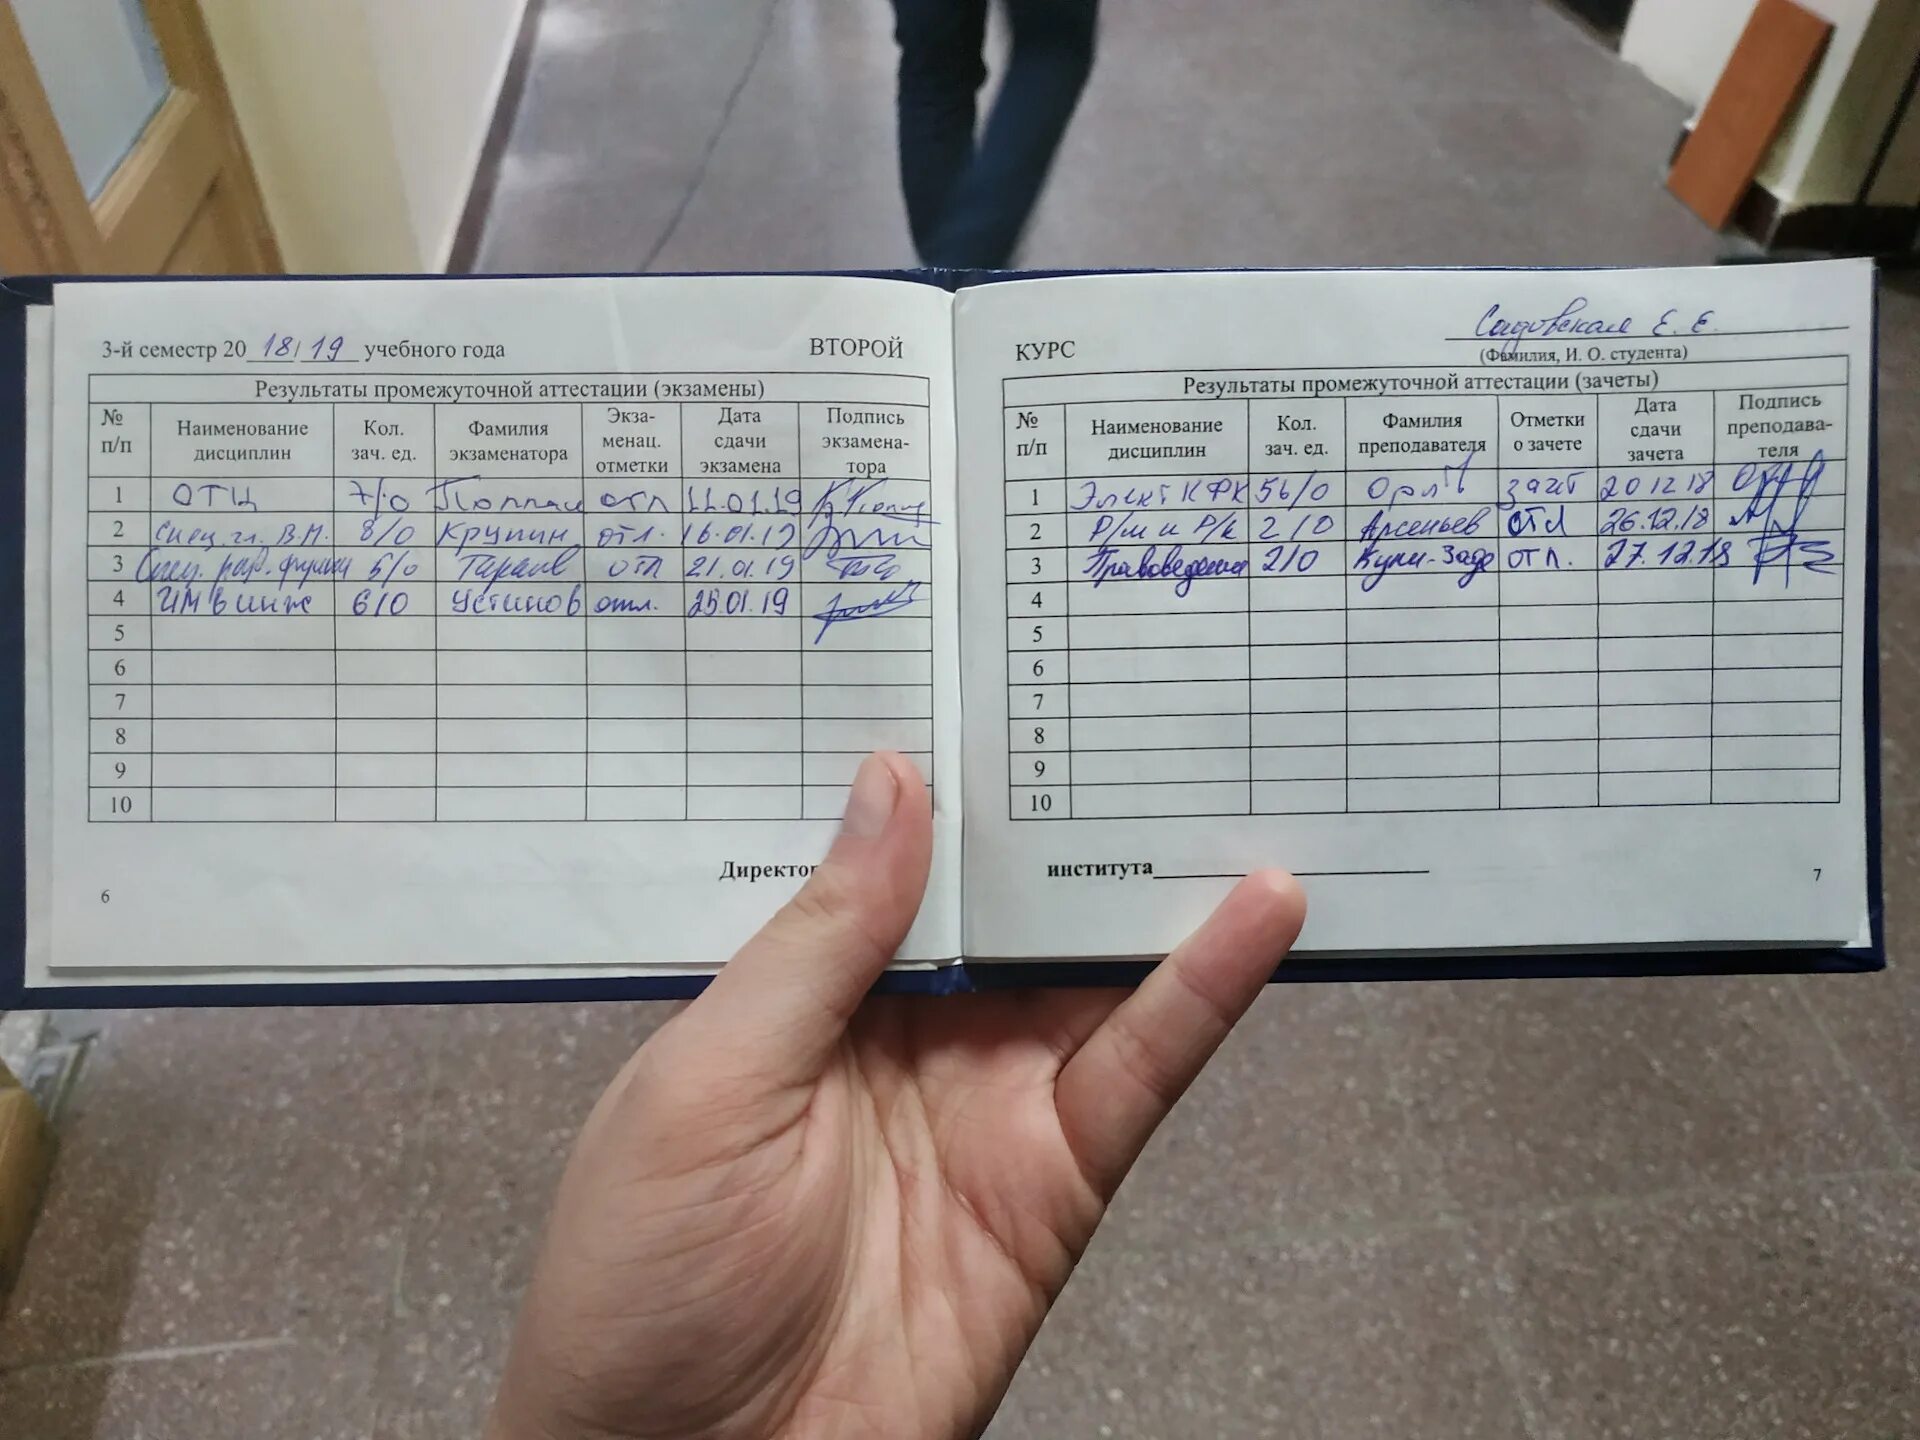 3-й семестр 20 18/19 учебного года ВТОРОЙ
Результаты промежуточной аттестации (экзамены)
№ п/п Наименование дисциплин Кол. зач. ед. Фамилия экзаменатора Экза-менац. отметки Дата сдачи экзамена Подпись экзамена-тора
1 ОТЦ 7/0 отл 11.01.19
2 Спец. гл. В.М. 8/0 Крупин отл. 16.01.19
3 Спец. 5/0 отл 21.01.19
4 ИМ в инж 6/0 Устинов отл. 25.01.19
5
6
7
8
9
10
Директор
6
КУРС Садовская Е. Е.
(Фамилия, И. О. студента)
Результаты промежуточной аттестации (зачеты)
№ п/п Наименование дисциплин Кол. зач. ед. Фамилия преподавателя Отметки о зачете Дата сдачи зачета Подпись преподава-теля
1 Элект КФК 56/0 зачт 20 12 18
2 Р/ш и Р/к 2/0 Арсеньев отл 26.12.18
3 Правоведение 2/0 Кули-Заде отл. 27.12.18
4
5
6
7
8
9
10
института
7